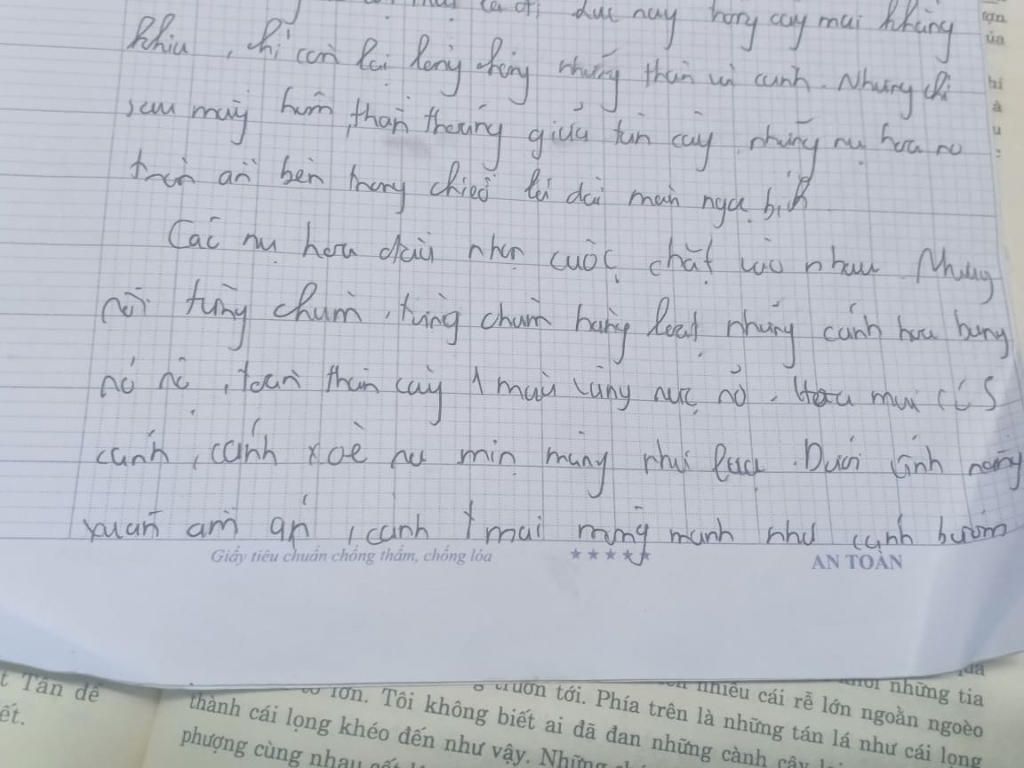 lúc này hàng cây mai khẳng
khiu, chỉ còn lại lỏng chỏng những thân và cành. Nhưng chỉ
sau mấy hôm, thấp thoáng giữa tán cây những nụ hoa no
tròn ẩn bên trong chiếc lá dài màu ngọc bích
Các nụ hoa đầu nhọn cuộc chặt vào nhau Nhưng
rồi từng chùm, từng chùm hàng loạt những cánh hoa bung
nở rộ, toàn thân cây 1 màu vàng rực rỡ. Hoa mai có 5
cánh, cánh xoè ra mịn màng như lụa. Dưới ánh nắng
xuân ấm áp, cánh mai mỏng manh như cánh bướm
Giấy tiêu chuẩn chống thấm, chống lóa ★★★★★ AN TOÀN
t Tán để
ết.
những tia
lớn. Tôi không biết ai đã đan những cành cây
tới. Phía trên là những tán lá như cái lọng
nhiều cái rễ lớn ngoằn ngoèo
thành cái lọng khéo đến như vậy.
phượng cùng nhau